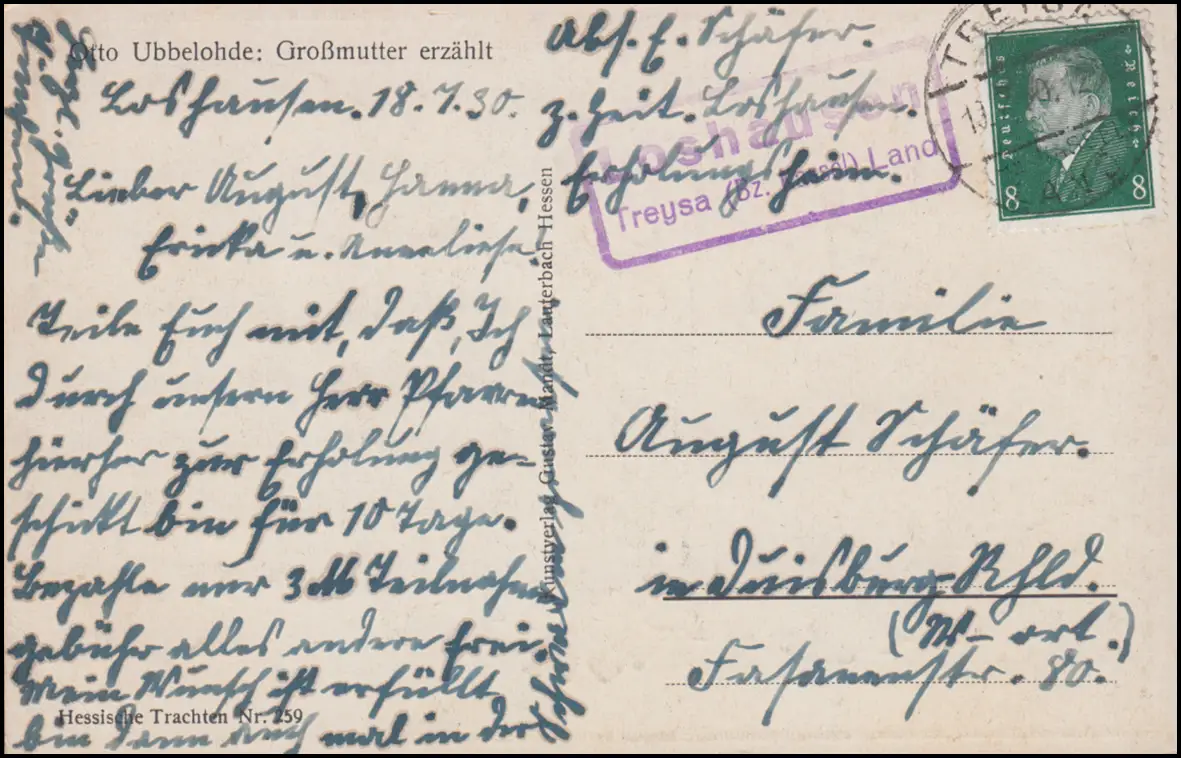 Otto Ubbelohde: Großmutter erzählt
Loshausen. 18.7.30.
Lieber August, Hanna,
Ericka u. Anneliese!
Teile Euch mit, daß, Ich
durch unsern Herr Pfarrer
hierher zur Erholung ge-
schickt bin für 10 Tage.
Bezahle nur 3 M Teilnahme
gebühr alles andere frei.
Mein Wunsch ist erfüllt
bin dann auch mal in der
Hessische Trachten Nr. 259
Kunstverlag Gustav Mandt, Lauterbach Hessen
Abs. E. Schäfer.
z. Zeit. Loshausen.
Erholungsheim.
Loshausen
Treysa (Bz. Kassel) Land
TREYSA
Deutsches Reich
8 8
Familie
August Schäfer.
in Duisburg Rhld.
(W-ort.)
Fasanenstr. 80.